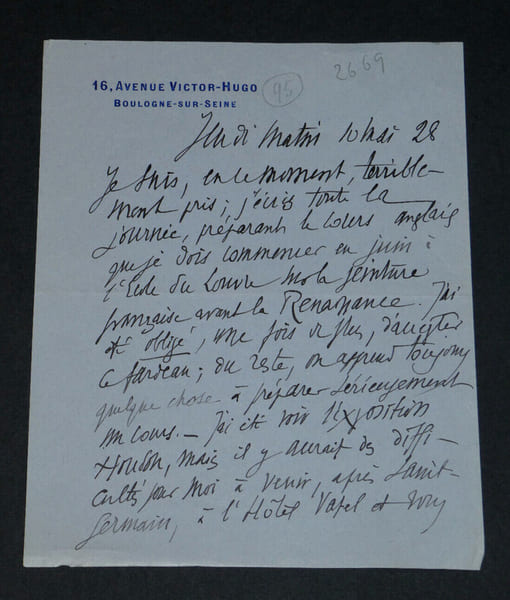 16, Avenue Victor-Hugo
Boulogne-sur-Seine
95
2669
Jeudi matin 10 mai 28
Je suis, en ce moment, terrible-
ment pris ; j'écris toute la
journée, préparant le cours anglais
que je dois commencer en juin à
l'École du Louvre sur la peinture
française avant la Renaissance. J'ai
été obligé, une fois de plus, d'accepter
ce fardeau ; du reste, on apprend toujours
quelque chose à préparer sérieusement
un cours. — J'ai été voir l'Exposition
Houdon, mais il y aurait des diffi-
cultés pour moi à venir, après Saint-
Germain, à l'Hôtel Vatel et vous